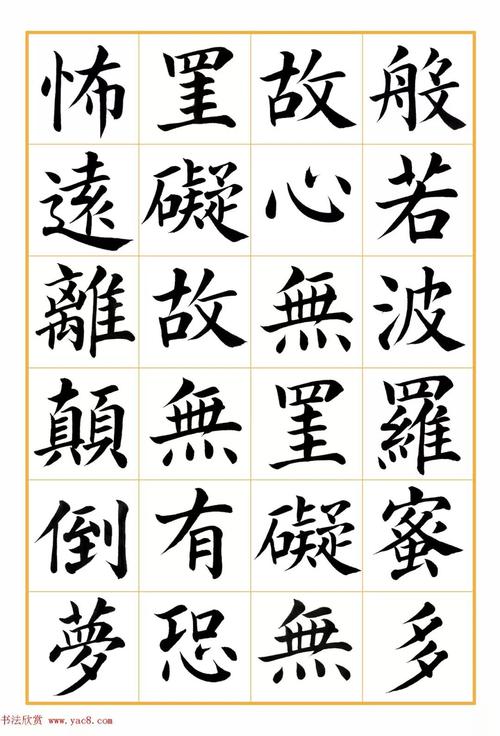 般若波羅蜜多
故心無罣礙無
罣礙故無有恐
怖遠離顛倒夢
书法欣赏 www.yac8.com